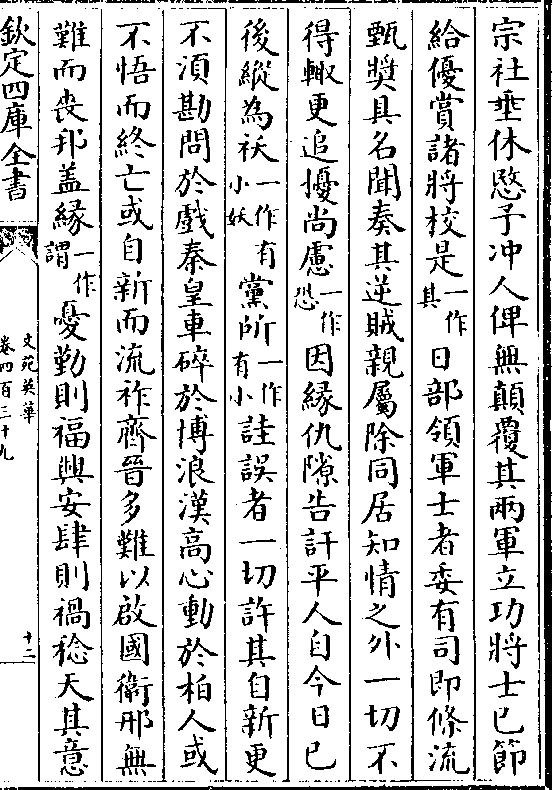 宗社垂休愍予冲人俾無顛覆其兩軍立功將士已節
給優賞諸將校是一作其日部領軍士者委有司即條流
甄奬具名聞奏其逆賊親屬除同居知情之外一切不
得輙更追擾尚慮一作恐因緣仇隙告訐平人自今日已
後縱為袄一作小妖有黨所一作有小詿誤者一切許其自新更
不湏勘問於戲秦皇車碎於博浪漢高心動於柏人或
不悟而終亡或自新而流祚齊晉多難以啟國衛邢無
難而喪邦盖緣一作謂憂勤則福興安肆則禍稔天其意
欽定四庫全書
文苑英華
卷四百三十九
十二